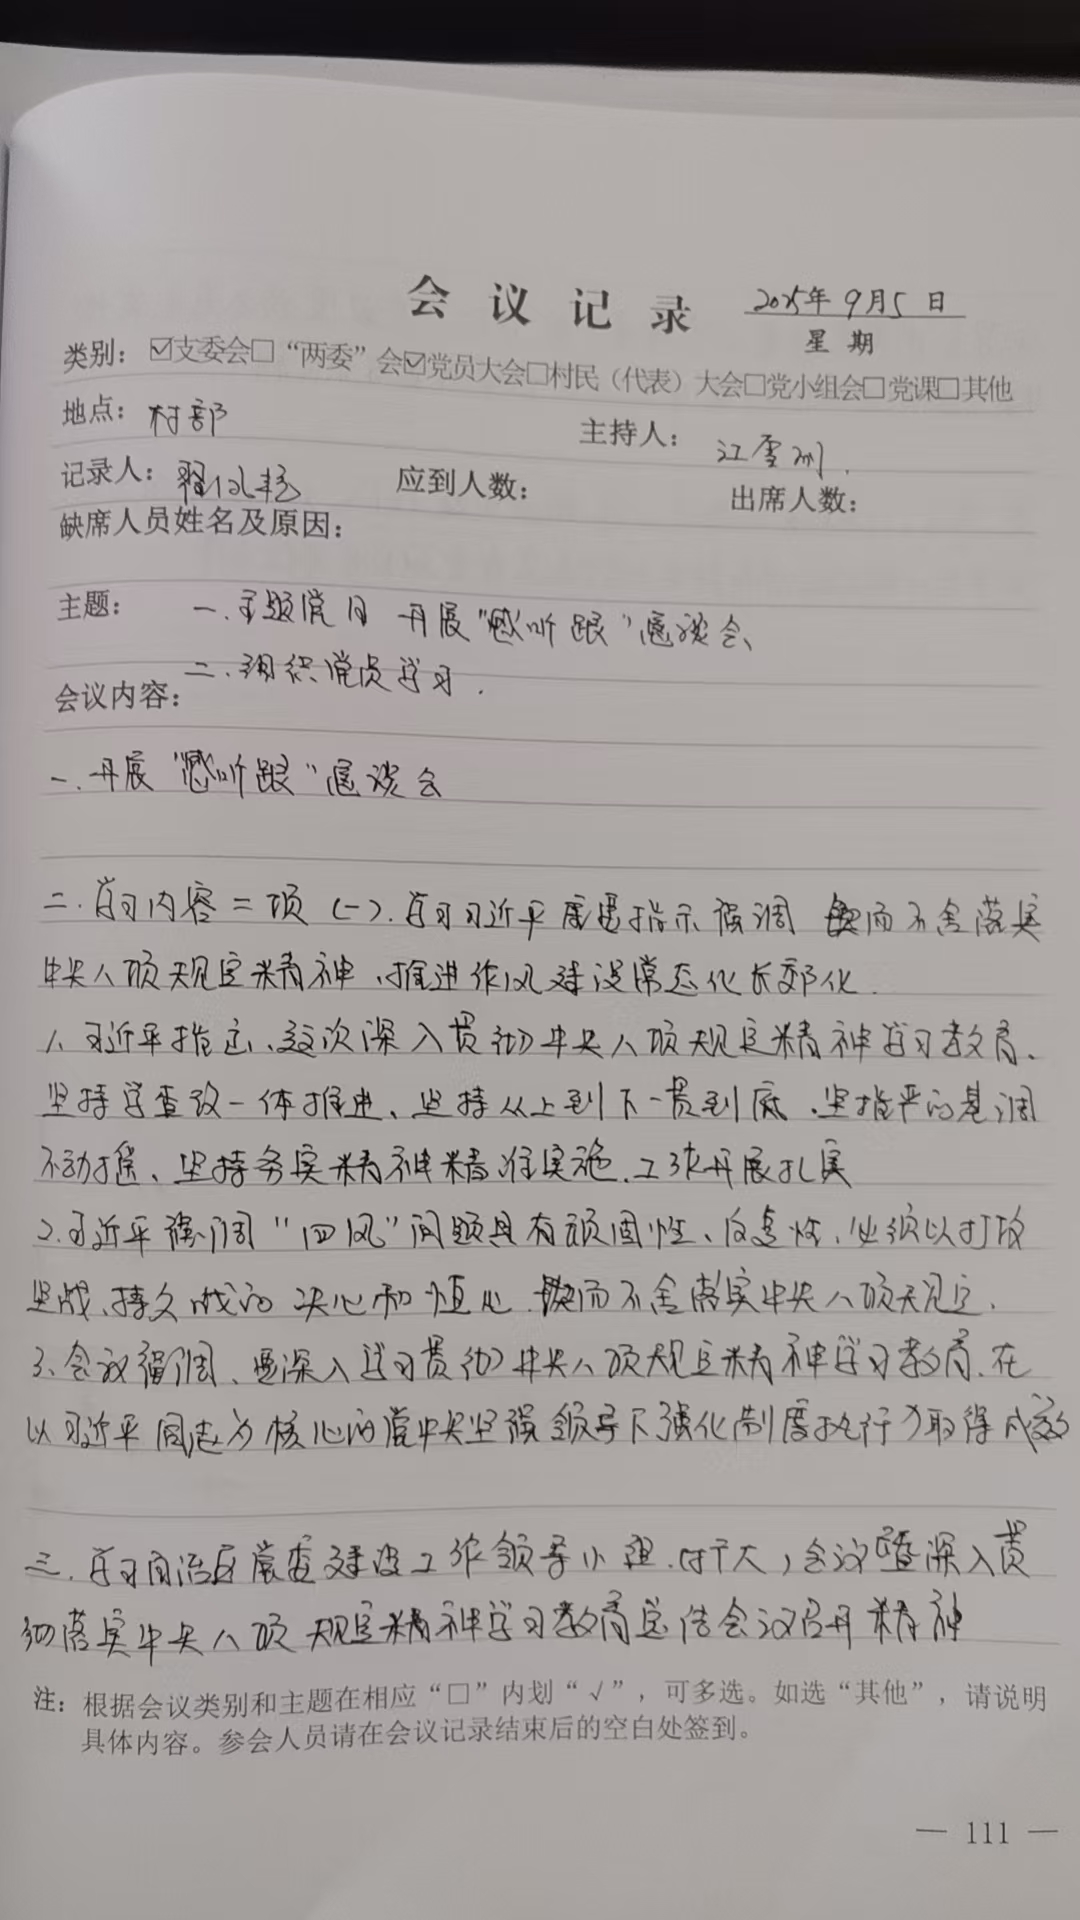 会议记录 2025年9月5日
星期
类别：☑支委会□“两委”会☑党员大会□村民（代表）大会□党小组会□党课□其他
地点：村部 主持人：江雪
记录人：翟 应到人数： 出席人数：
缺席人员姓名及原因：
主题： 一.主题党日 开展“感听跟”座谈会、
二.组织党员学习.
会议内容：
一.开展“感听跟”座谈会
二.学习内容二项 (一).学习习近平 指示强调 锲而不舍落实
中央八项规定精神,推进作风建设常态化长效化.
1.习近平指出、这次深入贯彻中央八项规定精神学习教育、
坚持学查改一体推进、坚持从上到下一贯到底、坚持严的基调
不动摇、坚持务实精神精准实施.工作开展扎实
2.习近平强调“四风”问题具有顽固性、反复性,必须以打攻
坚战、持久战的决心和恒心.锲而不舍落实中央八项规定.
3.会议强调、要深入学习贯彻中央八项规定精神学习教育.在
以习近平同志为核心的党中央坚强领导下强化制度执行力取得成效
三.学习自治区党委建设工作领导小组. 会议暨深入贯
彻落实中央八项规定精神学习教育总结会议召开精神
注：根据会议类别和主题在相应“□”内划“√”，可多选。如选“其他”，请说明
具体内容。参会人员请在会议记录结束后的空白处签到。
— 111 —